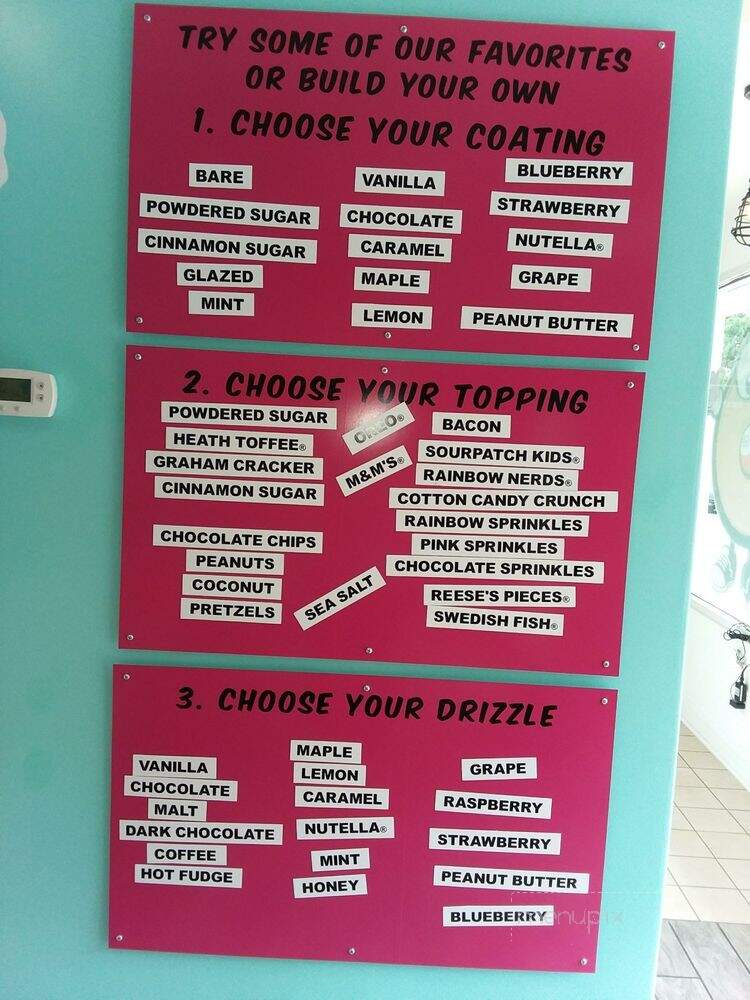 TRY SOME OF OUR FAVORITES
OR BUILD YOUR OWN
1. CHOOSE YOUR COATING
BARE
POWDERED SUGAR
CINNAMON SUGAR
GLAZED
MINT
VANILLA
CHOCOLATE
CARAMEL
MAPLE
LEMON
BLUEBERRY
STRAWBERRY
NUTELLA®
GRAPE
PEANUT BUTTER
2. CHOOSE YOUR TOPPING
POWDERED SUGAR
HEATH TOFFEE®
GRAHAM CRACKER
CINNAMON SUGAR
CHOCOLATE CHIPS
PEANUTS
COCONUT
PRETZELS
OREO®
M&M'S®
SEA SALT
BACON
SOURPATCH KIDS®
RAINBOW NERDS®
COTTON CANDY CRUNCH
RAINBOW SPRINKLES
PINK SPRINKLES
CHOCOLATE SPRINKLES
REESE'S PIECES®
SWEDISH FISH®
3. CHOOSE YOUR DRIZZLE
VANILLA
CHOCOLATE
MALT
DARK CHOCOLATE
COFFEE
HOT FUDGE
MAPLE
LEMON
CARAMEL
NUTELLA®
MINT
HONEY
GRAPE
RASPBERRY
STRAWBERRY
PEANUT BUTTER
BLUEBERRY
menupix